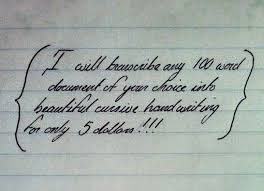 I will transcribe any 100 word
document of your choice into
beautiful cursive handwriting
for only 5 dollars!!!